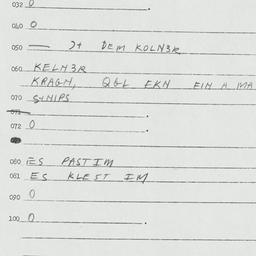 032 0
040 0
050 — 7+ DEM KOLN3R
060 KELN3R
KRAGN, QGL EKN EIN A MA
070 S+NIPS
071
072 0
080 ES PAST IM
081 ES KLEST IM
090 0
100 0